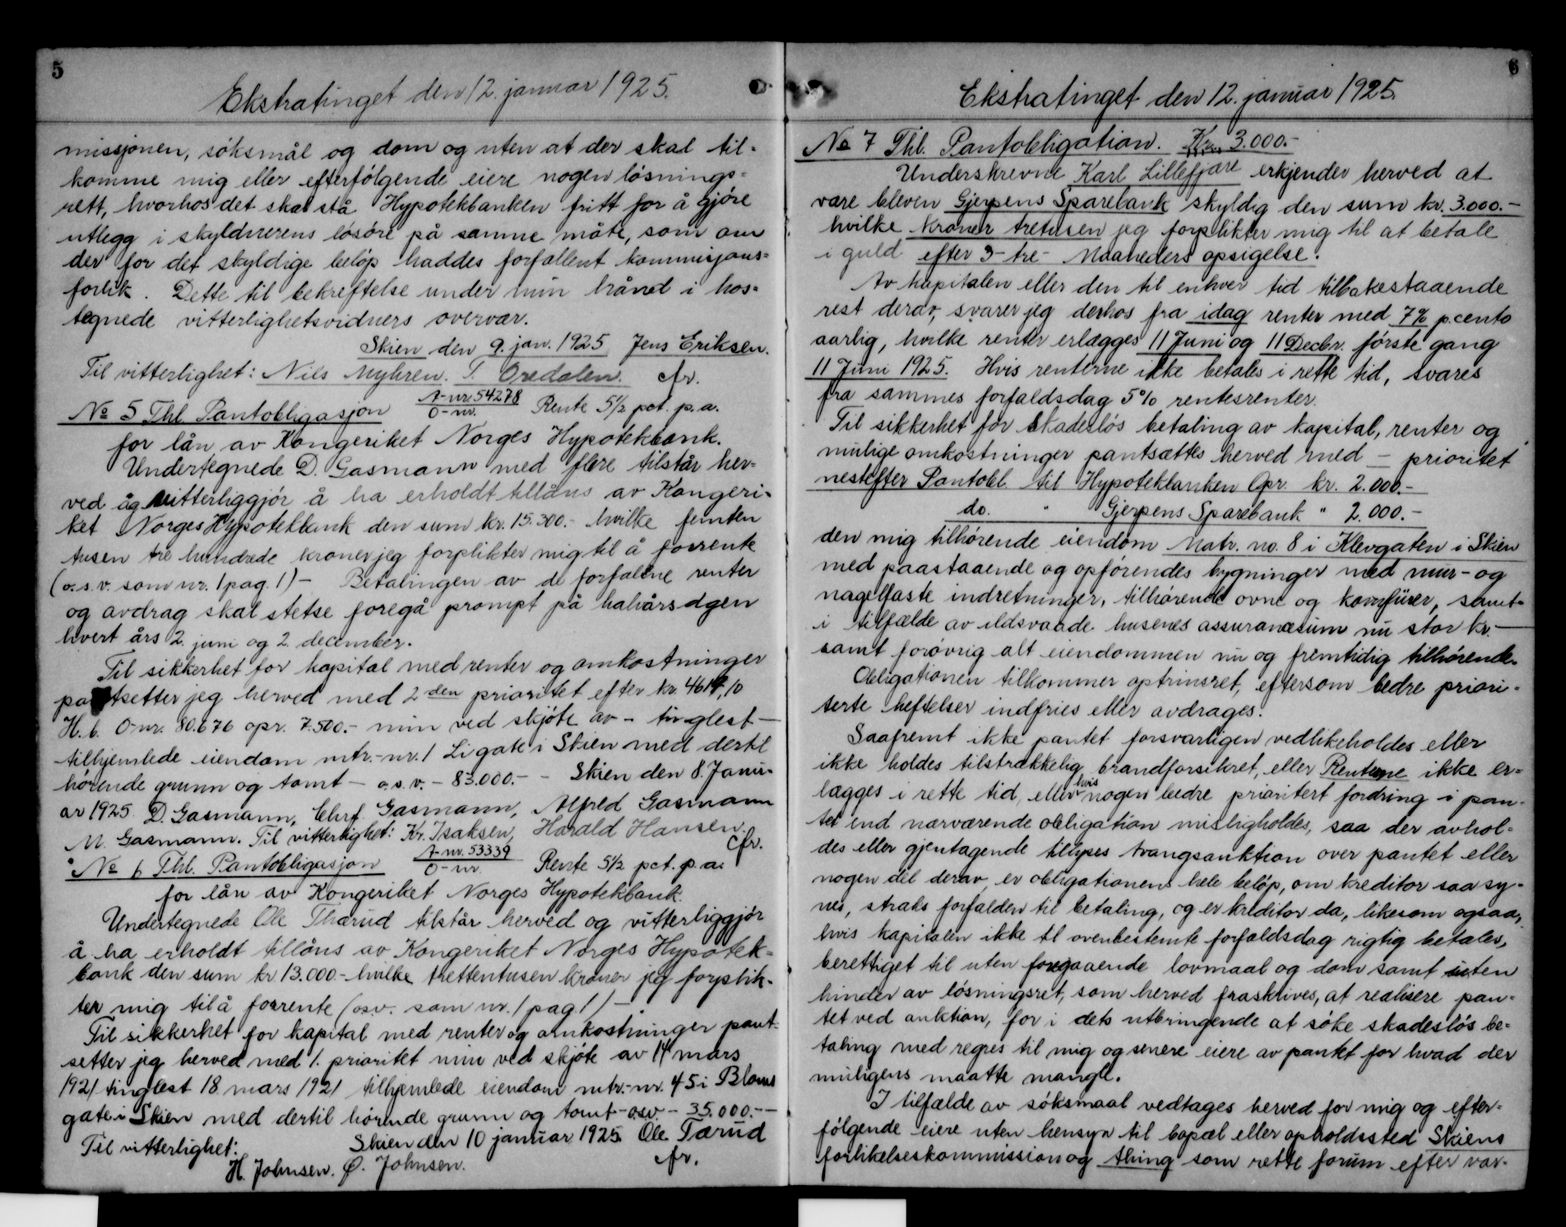 5
Ekstratinget den 12. januar 1925.
missjonen, söksmål og dom og uten at der skal til-
komme mig eller efterfölgende eiere nogen lösnings-
rett, hvorhos det skal stå Hypotekbanken fritt for å gjöre
utlegg i skyldnerens lösöre på samme måte, som om
der for det skyldige belöp haddes forfallent kommisjons-
forlik. Dette til bekreftelse under min hånd i hos-
tegnede vitterlighetsvidners overvær.
Skien den 9. jan. 1925 Jens Eriksen.
Til vitterlighet: Nils Myhren. T. Oredalen. cfr.
No 5 Thl. Pantobligasjon A-nr. 54278 O-nr. Rente 5½ pct. p.a.
for lån av Kongeriket Norges Hypotekbank.
Undertegnede D. Gasmann med flere tilstår her-
ved åg vitterliggjör å ha erholdt tillåns av Kongeri-
ket Norges Hypotekbank den sum kr. 15.300.- hvilke femten
tusen tre hundrede kroner jeg forplikter mig til å forrente
(o.s.v. som nr. 1 pag 1) - Betalingen av de forfalne renter
og avdrag skal stetse foregå prompt på halvårsdgen
hvert års 2 juni og 2 december.
Til sikkerhet for kapital med renter og omkostninger
pantsetter jeg herved med 2 den prioritet efter kr. 4614,10
H.b. O-nr. 80.676 opr. 7.500.- min ved skjöte av - tinglest -
tilhjemlede eiendom mtr.-nr. 1 Li gate i Skien med dertil
hörende grunn og tomt - o.s.v. - 83.000.- - Skien den 8. Janu-
ar 1925 D. Gasmann, Chrf. Gasmann, Alfred Gasmann
M. Gasmann. Til vitterlighet: Kr. Isaksen, Harald Hansen.
cfr.
No 6 Thl. Pantobligasjon A-nr. 53339 O-nr Rente 5½ pct. p.a.
for lån av Kongeriket Norges Hypotekbank.
Undertegnede Ole Thærud tilstår herved og vitterliggjör
å ha erholdt tillåns av Kongeriket Norges Hypotek-
bank den sum kr 13.000.- hvilke trettentusen kroner jeg forplik-
ter mig til å forrente (osv. som nr. 1 pag 1) -
Til sikkerhet for kapital med renter og omkostninger pant-
setter jeg herved med 1. prioritet min ved skjöte av 14 mars
1921 tinglest 18 mars 1921 tilhjemlede eiendom mtr.-nr. 45 i Bloms
gate i Skien med dertil hörende grunn og tomt - osv - 35.000.--
Til vitterlighet: Skien den 10 januar 1925 Ole Tærud
H. Johnsen. Ø. Johnsen. cfr.
6
Ekstratinget den 12. januar 1925.
No 7 Thl. Pantobligation. Kr. 3.000.-
Underskrevne Karl Lillefjære erkjender herved at
være bleven Gjerpens Sparebank skyldig den sum kr. 3.000.-
hvilke kroner tretusen jeg forplikter mig til at betale
i guld efter 3-tre- Maaneders opsigelse.
Av kapitalen eller den til enhver tid tilbakestaaende
rest derav, svarer jeg derhos fra idag renter med 7% p.cento
aarlig, hvilke renter erlægges 11 Juni og 11 Decbr. förste gang
11 Juni 1925. Hvis renterne ikke betales i rette tid, svares
fra sammes forfaldsdag 5% rentesrenter.
Til sikkerhet for skadeslös betaling av kapital, renter og
mulige omkostninger pantsættes herved med - prioritet
nestefter Pantobl. til Hypotekbanken Opr. kr. 2.000.-
do. " Gjerpens Sparebank " 2.000.-
den mig tilhörende eiendom Matr. no. 8 i Klevgaten i Skien
med paastaaende og opförendes bygninger med mur- og
nagelfaste indretninger, tilhörende ovne og komfürer, samt
i tilfælde av ildsvaade husenes assurancesum nu stor kr. -
samt forövrig alt eiendommen nu og fremtidig tilhörende.
Obligationen tilkommer optrinsret, eftersom bedre priori-
terte heftelser indfries eller avdrages.
Saafremt ikke pantet forsvarligen vedlikeholdes eller
ikke holdes tilstrækkelig brandforsikret, eller Renterne ikke er-
lægges i rette tid, eller hvis nogen bedre prioritert fordring i pan-
tet end nærværende obligation misligholdes, saa der avhol-
des eller gjentagende tillyses tvangsauktion over pantet eller
nogen del derav, er obligationens hele belöp, om kreditor saa sy-
nes, straks forfalden til betaling, og er kreditor da, likesom ogsaa,
hvis kapitalen ikke til ovenbestemte forfaldsdag rigtig betales,
berettiget til uten foregaaende lovmaal og dom samt uten
hinder av lösningsret, som herved fraskrives, at realisere pan-
tet ved auktion, for i dets utbringende at söke skadeslös be-
taling med regres til mig og senere eiere av pantet for hvad der
muligens maatte mangle.
I tilfælde av söksmaal vedtages herved for mig og efter-
fölgende eiere uten hensyn til bopæl eller opholdssted Skiens
forlikelseskommission og thing som rette forum efter var-